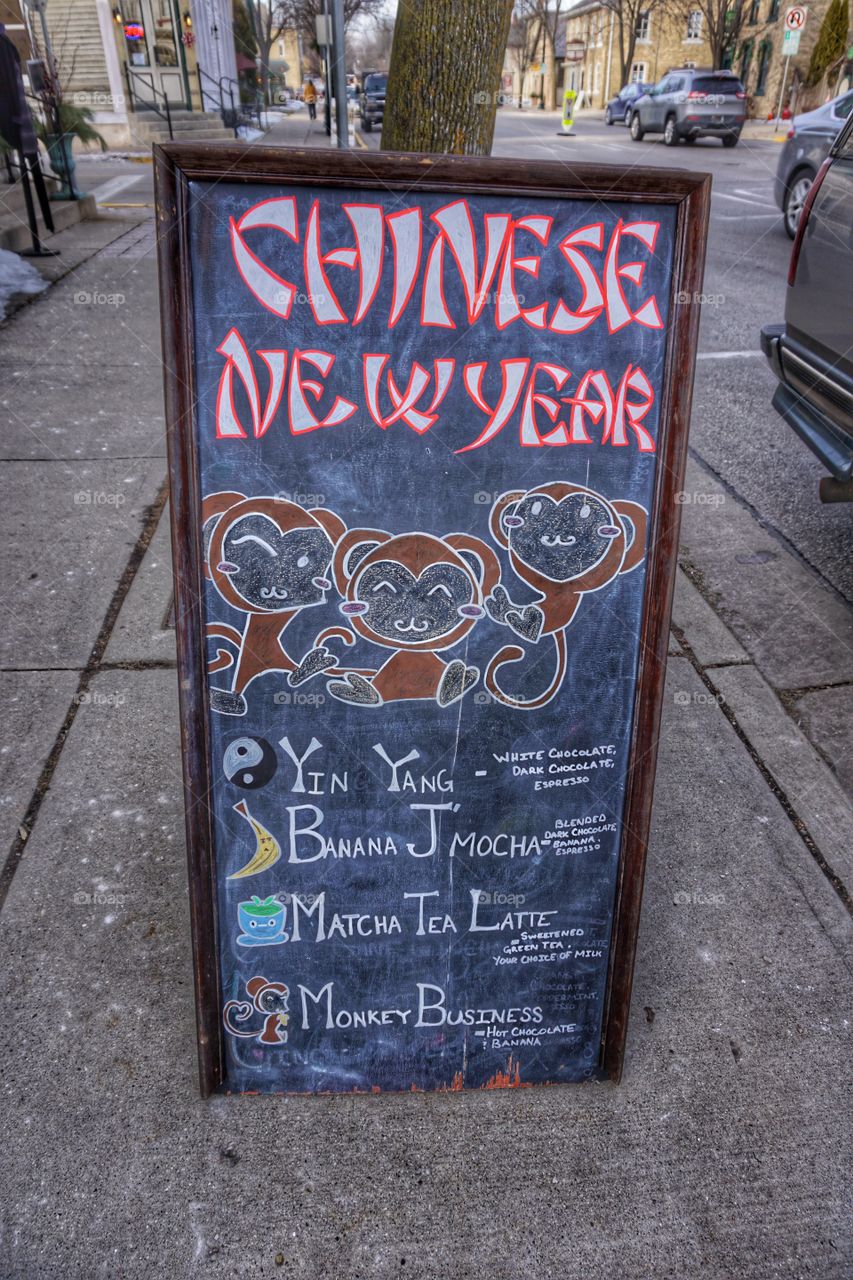 CHINESE
NEW YEAR
YIN YANG - WHITE CHOCOLATE,
DARK CHOCOLATE,
ESPRESSO
BANANA J'MOCHA - BLENDED
DARK CHOCOLATE
BANANA.
ESPRESSO
MATCHA TEA LATTE
- SWEETENED
GREEN TEA.
YOUR CHOICE OF MILK
MONKEY BUSINESS
- HOT CHOCOLATE
BANANA
foap